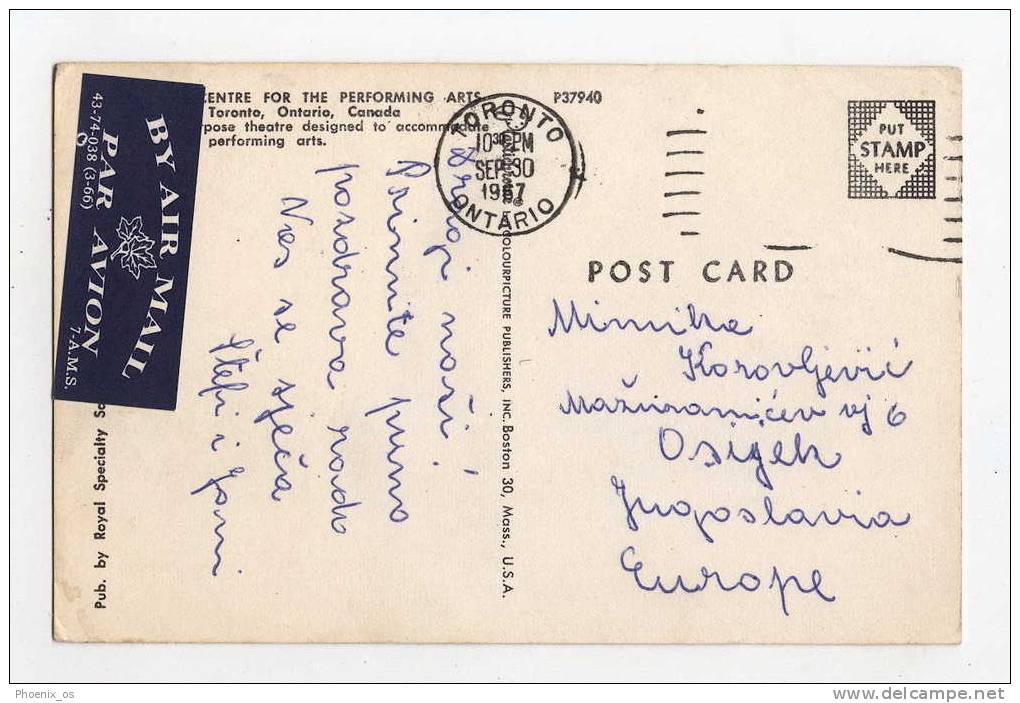 CENTRE FOR THE PERFORMING ARTS
Toronto, Ontario, Canada
pose theatre designed to accommodate
performing arts.
P37940
TORONTO
10 30 PM
SEP 30
1967
ONTARIO
PUT
STAMP
HERE
43-74-038 (3-66)
BY AIR MAIL
PAR AVION
7-A.M.S.
Pub. by Royal Specialty
COLOURPICTURE PUBLISHERS, INC. Boston 30, Mass., U.S.A.
POST CARD
Dragi naši!
Primite puno
pozdrava rado
Vas se sjeća
Štefi i
Mimika
Korovljević
Mažuranićev vj 6
Osijek
Jugoslavia
Europe
Phoenix_os
delcampe.net